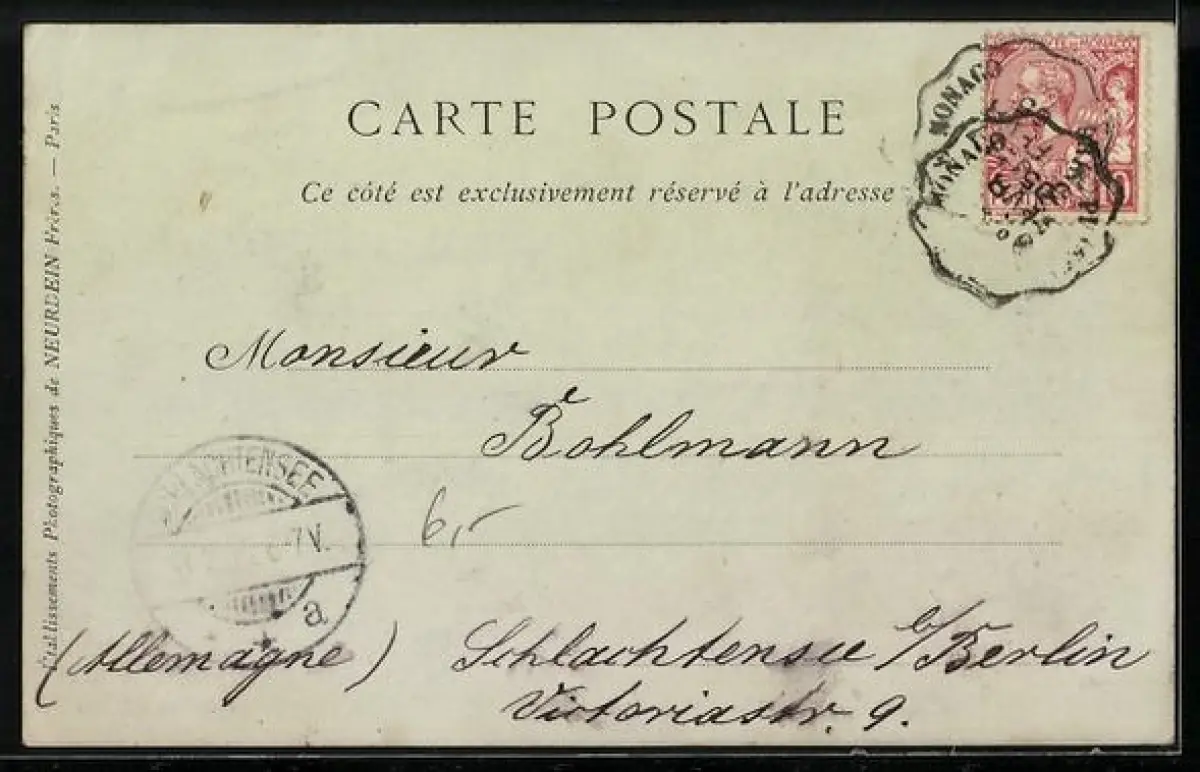 CARTE POSTALE
Ce côté est exclusivement réservé à l'adresse
MONACO
MONACO
Monsieur
Bohlmann
SCHLACHTENSEE
7V.
a
6,-
(Allemagne)
Schlachtensee b/Berlin
Victoriastr. 9.
Établissements Photographiques de NEURDEIN Frères. — Paris